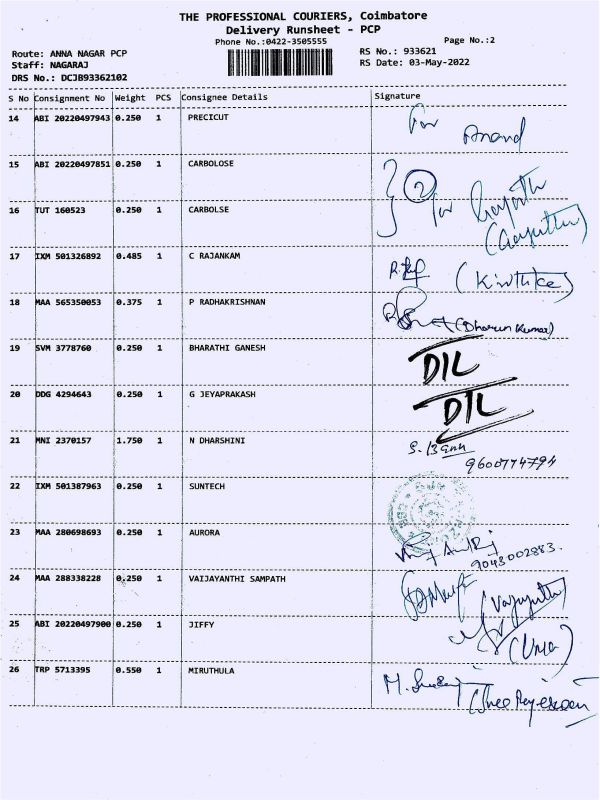 THE PROFESSIONAL COURIERS, Coimbatore
Delivery Runsheet - PCP
Phone No.:0422-3505555 Page No.:2
Route: ANNA NAGAR PCP RS No.: 933621
Staff: NAGARAJ RS Date: 03-May-2022
DRS No.: DCJB93362102
S No Consignment No Weight PCS Consignee Details Signature
14 ABI 20220497943 0.250 1 PRECICUT For Anand
15 ABI 20220497851 0.250 1 CARBOLOSE
2 for
16 TUT 160523 0.250 1 CARBOLSE
17 IXM 501326892 0.485 1 C RAJANKAM
18 MAA 565350053 0.375 1 P RADHAKRISHNAN (Dharun Kumar)
19 SVM 3778760 0.250 1 BHARATHI GANESH DIL
20 DDG 4294643 0.250 1 G JEYAPRAKASH DIL
21 MNI 2370157 1.750 1 N DHARSHINI
9600774794
22 IXM 501387963 0.250 1 SUNTECH
23 MAA 280698693 0.250 1 AURORA
9043002883.
24 MAA 288338228 0.250 1 VAIJAYANTHI SAMPATH
25 ABI 20220497900 0.250 1 JIFFY (Uma)
26 TRP 5713395 0.550 1 MIRUTHULA